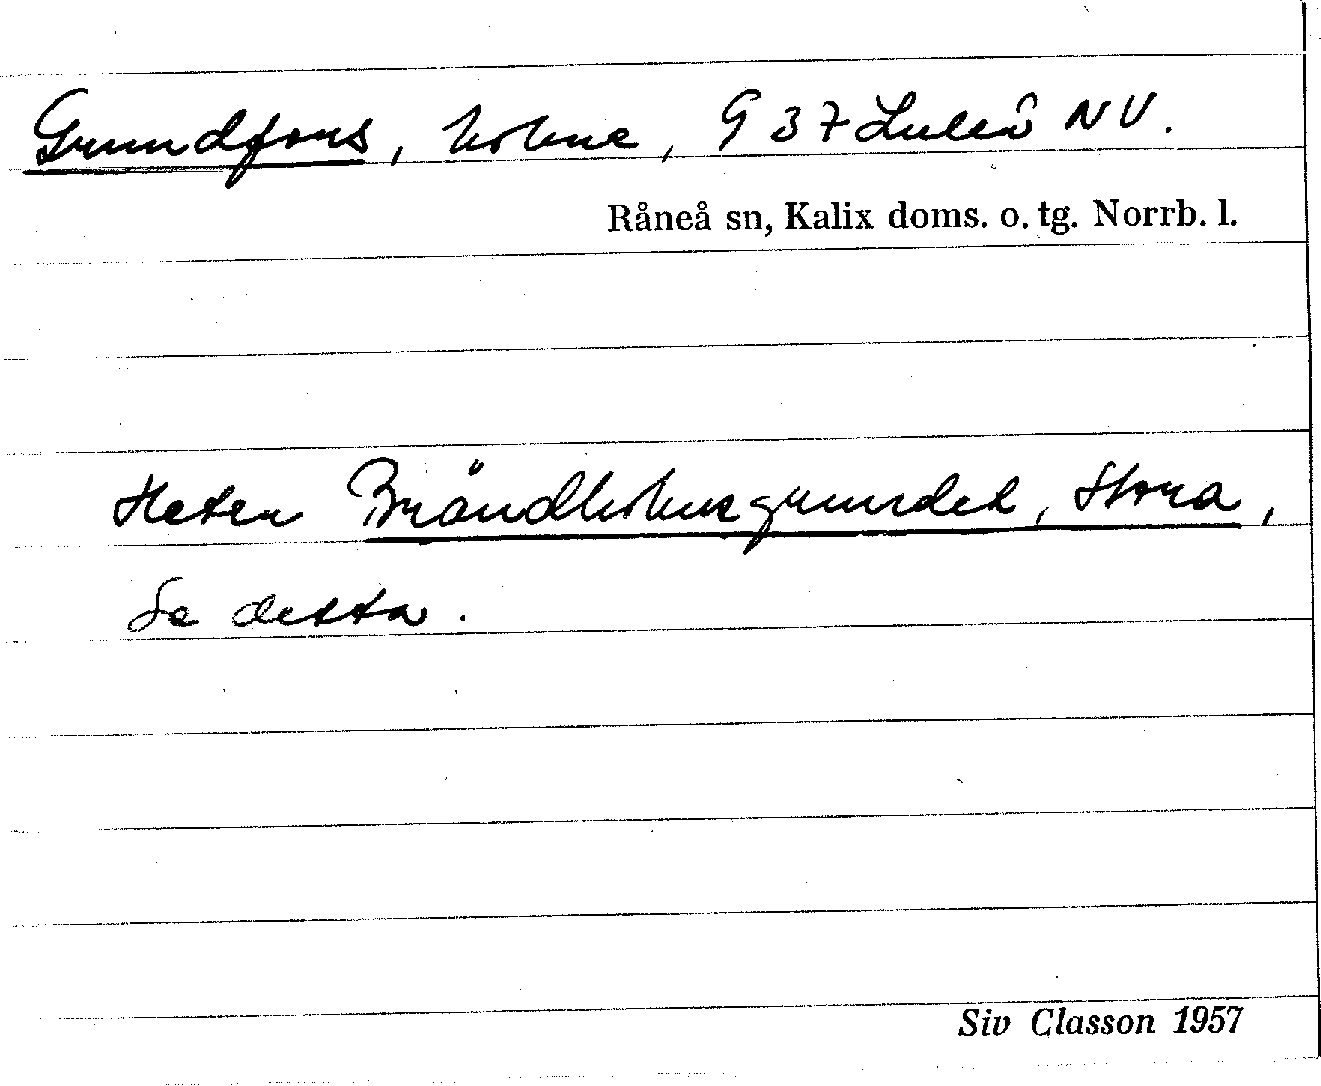 Grundfors, holme, G 37 Luleå NV.
Råneå sn, Kalix doms. o. tg. Norrb. l.
Heter Brändholmsgrundet, Stora,
se detta.
Siv Classon 1957